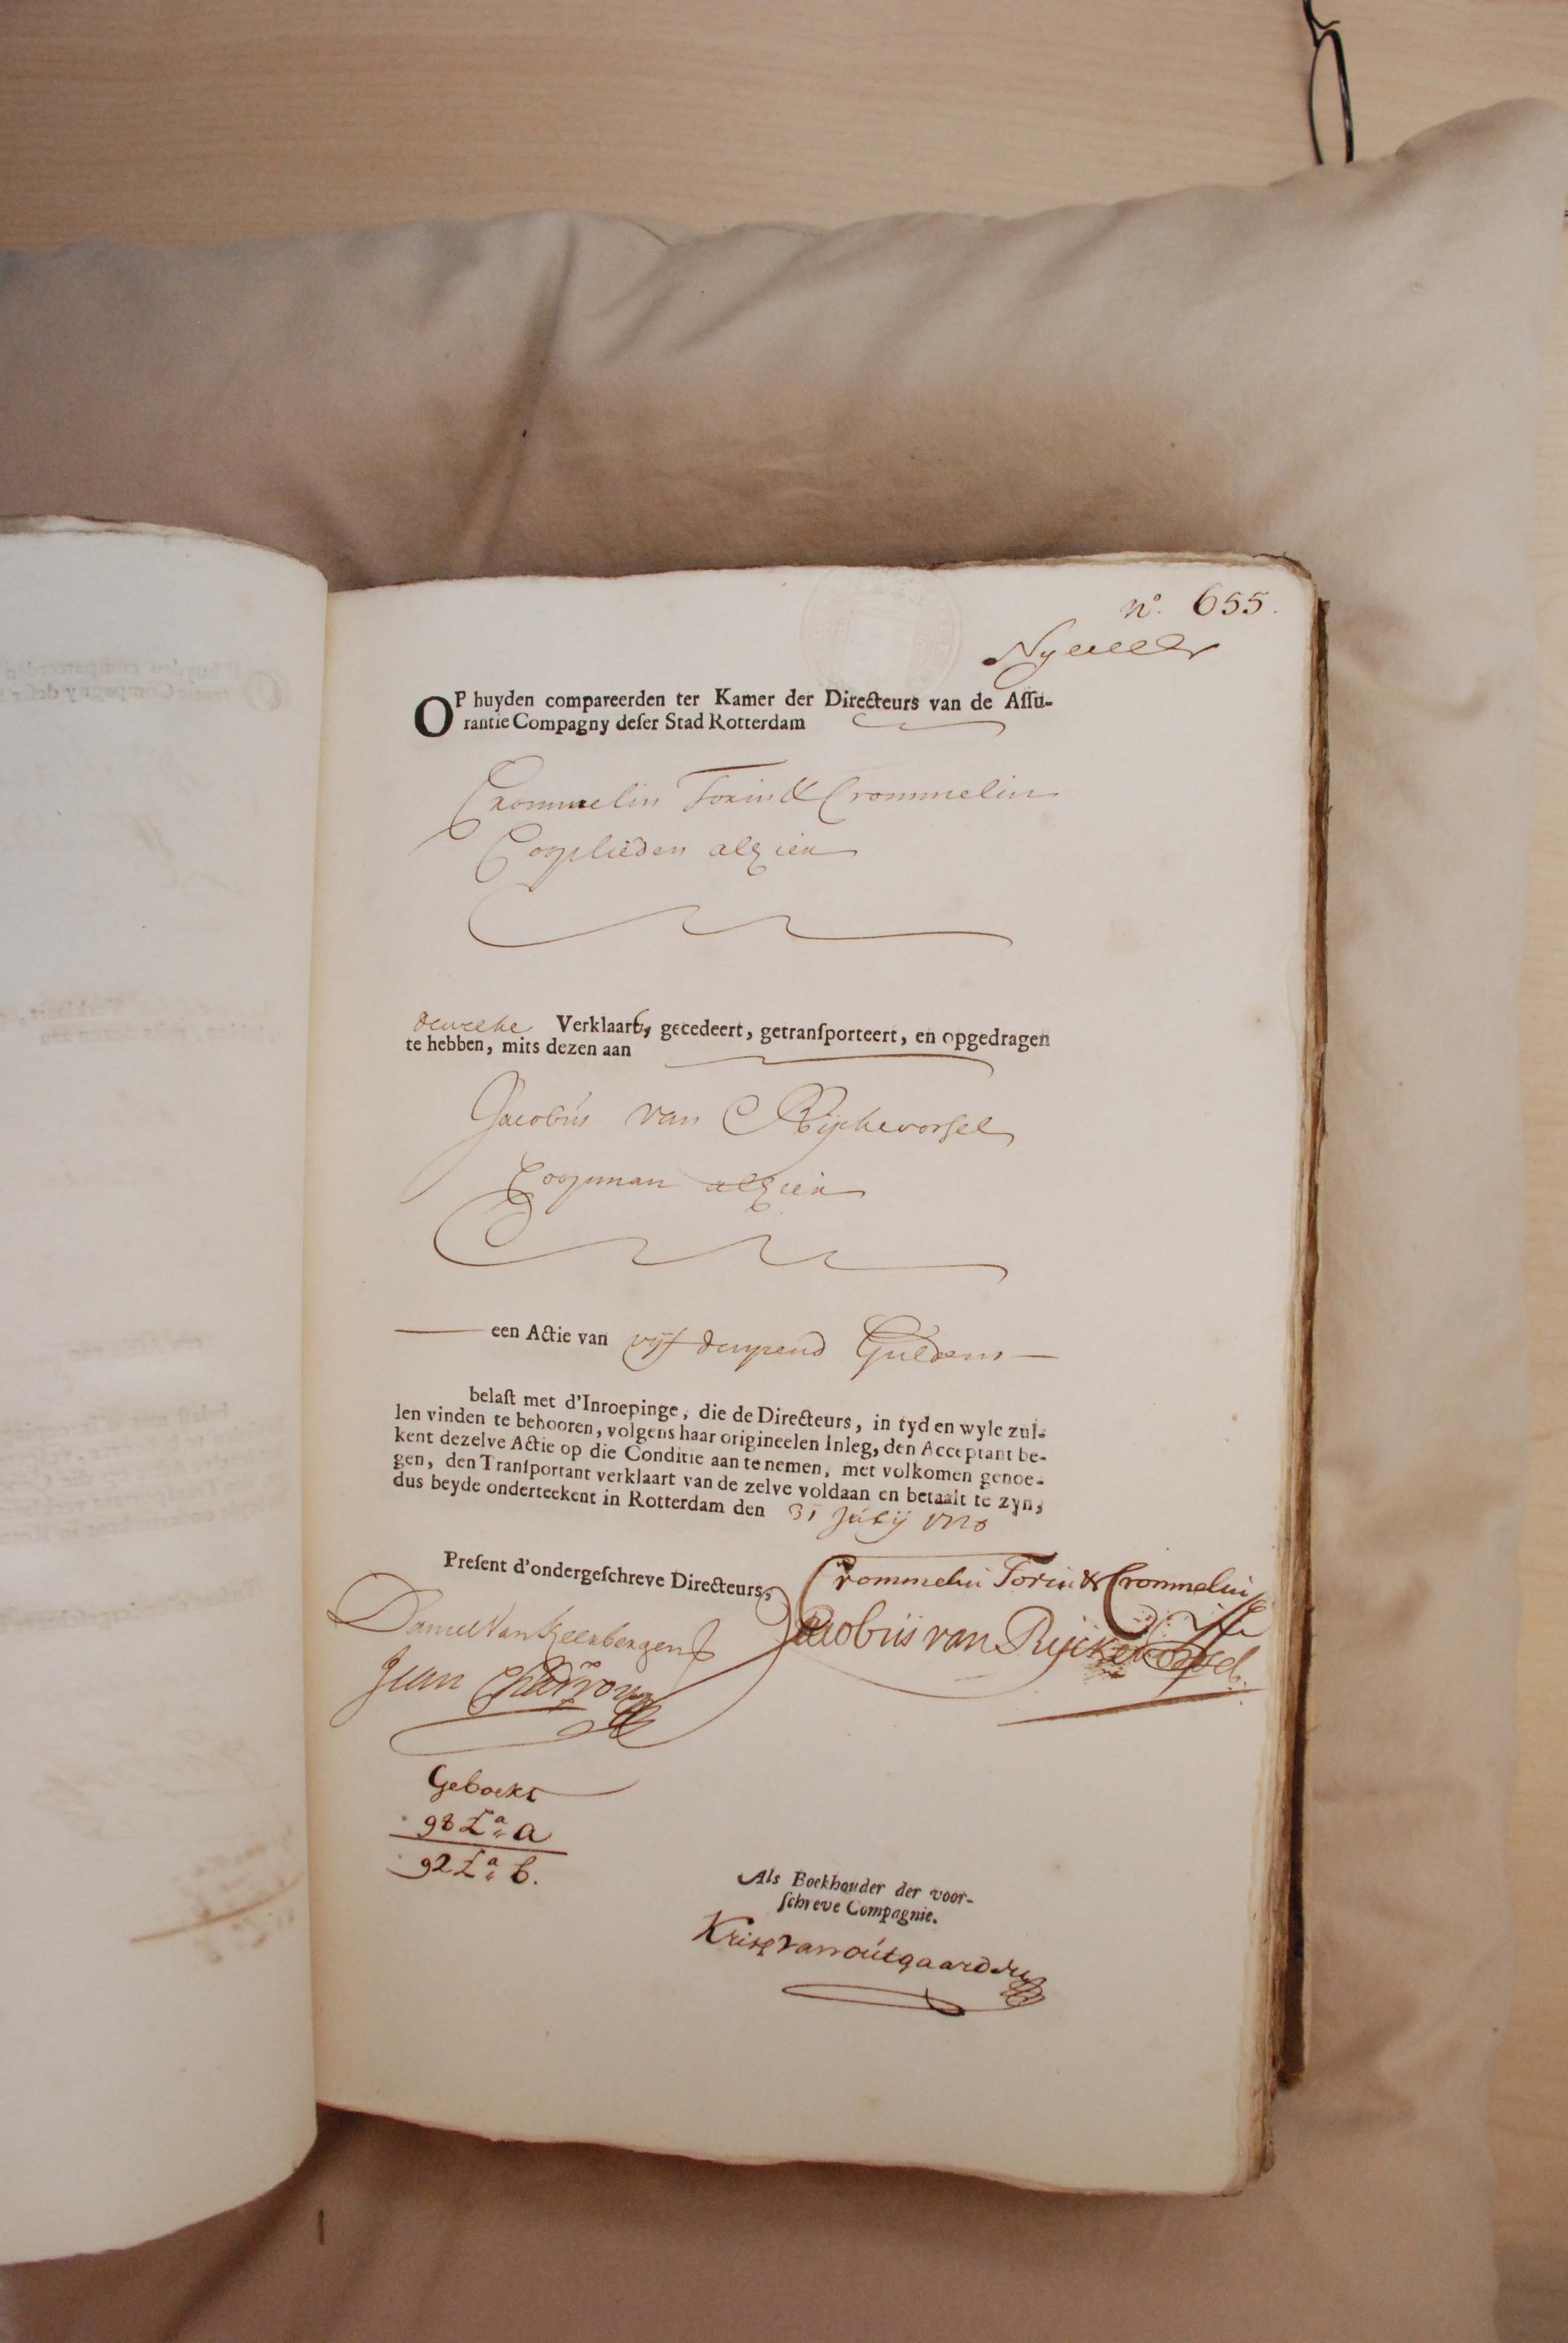 n.° 655.
OP huyden compareerden ter Kamer der Directeurs van de Assu-
rantie Compagny deser Stad Rotterdam
Crommelin Torin & Crommelin
Cooplieden alhier
dewelke Verklaart, gecedeert, getransporteert, en opgedragen
te hebben, mits dezen aan
Jacobus van Rijckevorsel
Coopman alhier
een Actie van vijf duysend Guldens
belast met d'Inroepinge, die de Directeurs, in tyd en wyle zul-
len vinden te behooren, volgens haar origineelen Inleg, den Acceptant be-
kent dezelve Actie op die Conditie aan te nemen, met volkomen genoe-
gen, den Transportant verklaart van de zelve voldaan en betaalt te zyn,
dus beyde onderteekent in Rotterdam den 31 Julij 1720
Present d'ondergeschreve Directeurs,
Crommelin Torin & Crommelin
Jacobus van Rijckevorsel
Daniel Van Keerbergen
Jean
Geboekt
98 L.a a
92 L.a b.
Als Boekhouder der voor-
schreve Compagnie.